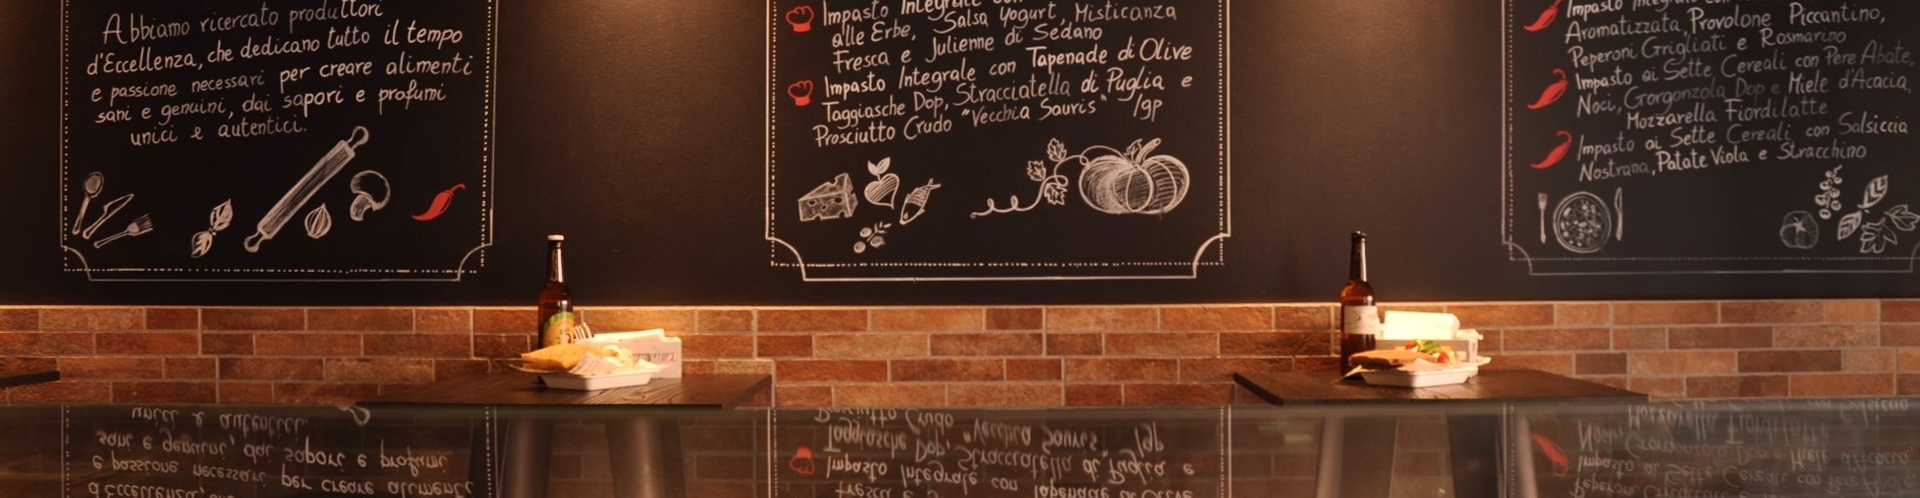 Abbiamo ricercato produttori
d'Eccellenza, che dedicano tutto il tempo
e passione necessari per creare alimenti
sani e genuini, dai sapori e profumi
unici e autentici.
Impasto Integrale con
alle Erbe, Salsa Yogurt, Misticanza
Fresca e Julienne di Sedano
Impasto Integrale con Tapenade di Olive
Taggiasche Dop, Stracciatella di Puglia e
Prosciutto Crudo "Vecchia Sauris" Igp
Impasto Integrale con
Aromatizzata, Provolone Piccantino,
Peperoni Grigliati e Rosmarino
Impasto ai Sette Cereali con Pere Abate,
Noci, Gorgonzola Dop e Miele d'Acacia,
Mozzarella Fiordilatte
Impasto ai Sette Cereali con Salsiccia
Nostrana, Patate Viola e Stracchino